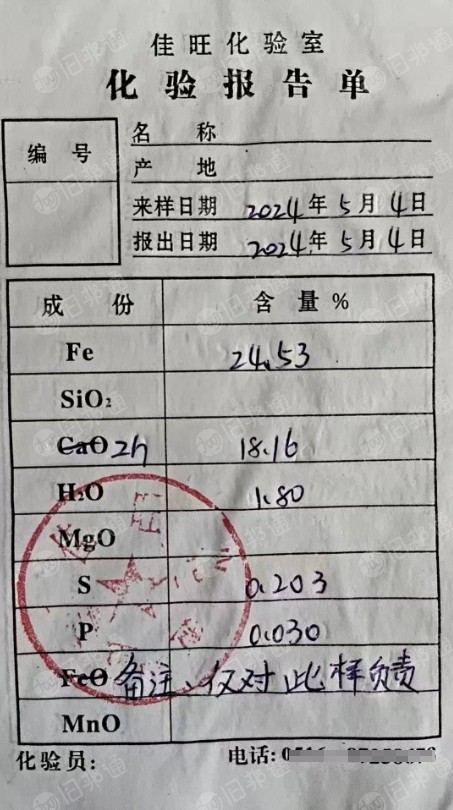 佳旺化验室
化验报告单
编号
名称
产地
来样日期 2024年5月4日
报出日期 2024年5月4日
成份 含量%
Fe 24.53
SiO₂
CaO Zn 18.16
H₂O 1.80
MgO
S 0.203
P 0.030
FeO 备注、仅对此样负责
MnO
化验员: 电话: 0516